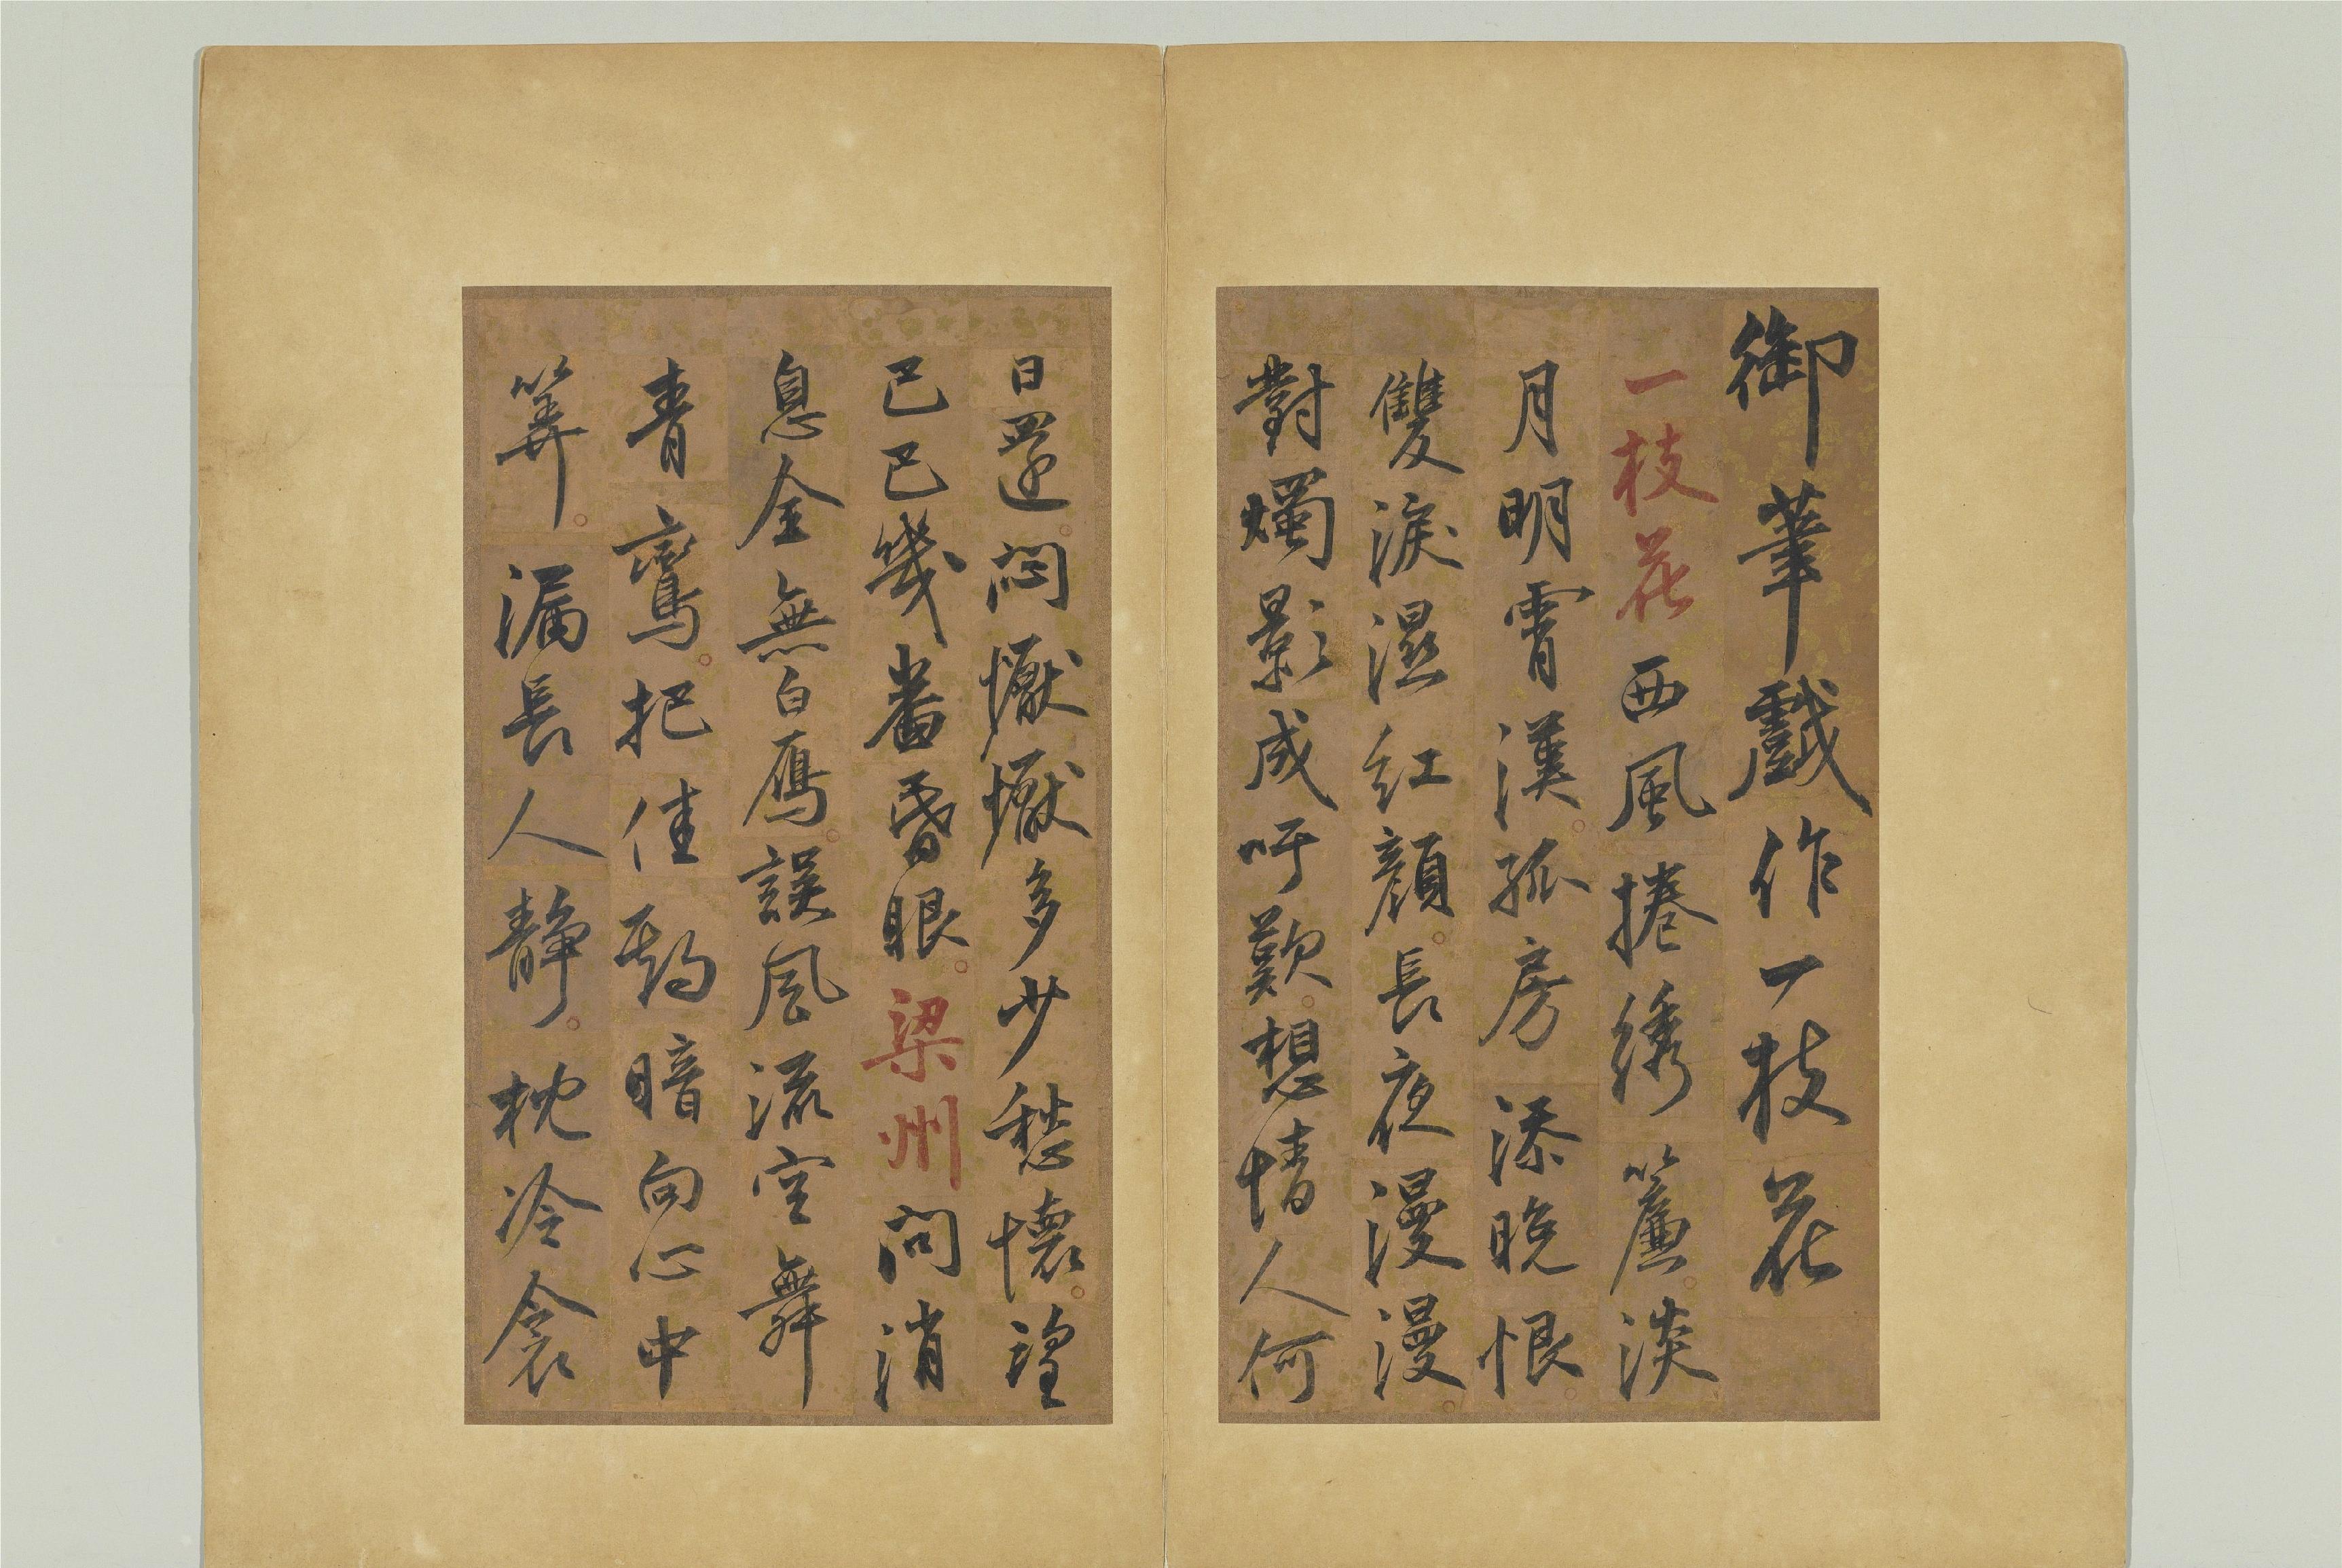 御筆戲作一枝花
一枝花西風捲綉簾淡
月明霄漢孤房添晚恨
雙淚濕紅顏長夜漫漫
對燭影成吁歎想情人何
日還悶懨懨多少愁懷望
巴巴幾番昏眼梁州問消
息全無白鴈誤風流空舞
青鸞把佳期暗向心中
筭漏長人静枕冷衾